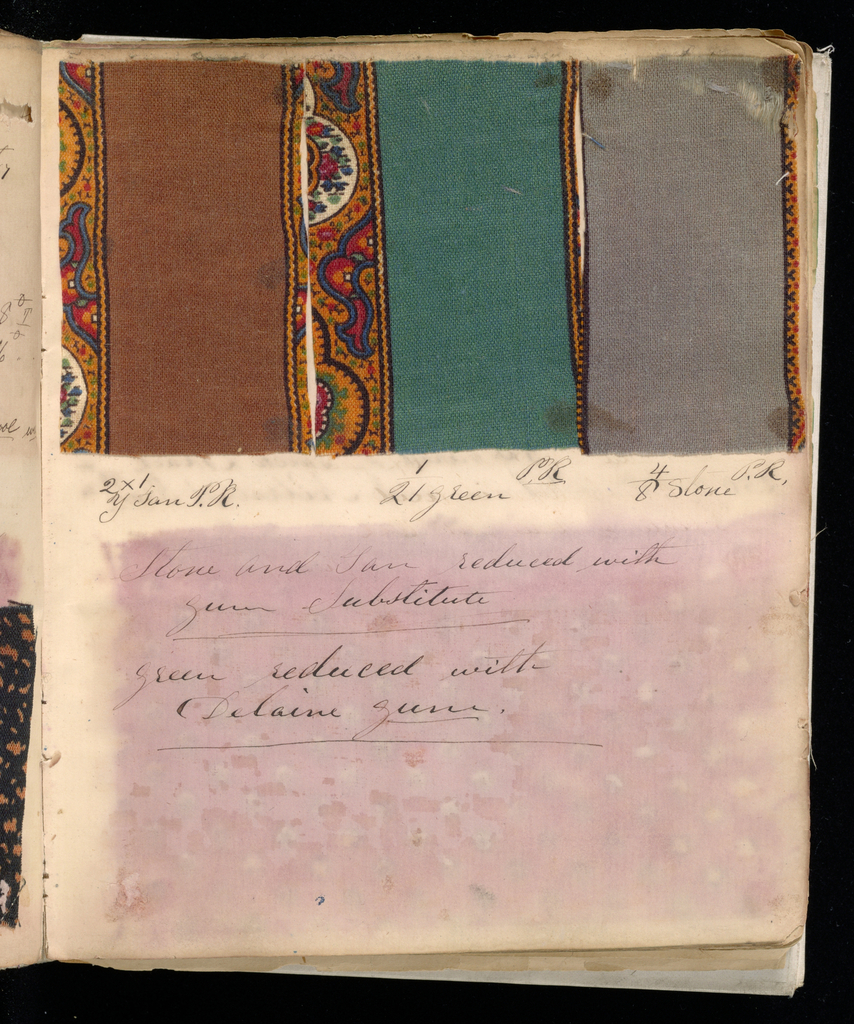 2 x 1
y Tan P.R.
1
21 green P.R
4
8 Stone P.R.
Stone and Tan reduced with
gum Substitute
green reduced with
Delaine gum.